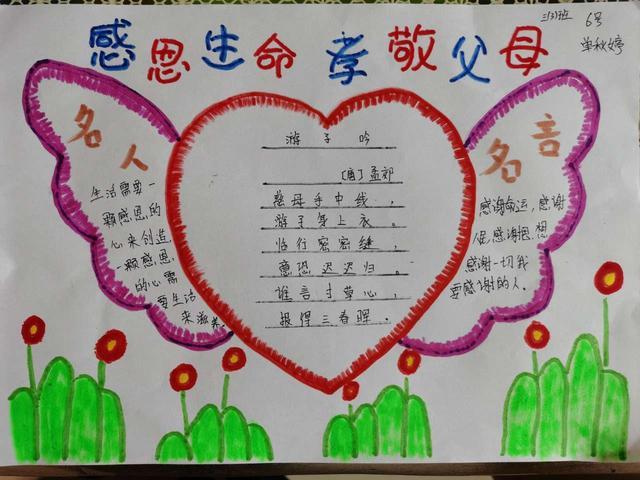 三(3)班 6号
单秋婷
感恩生命 孝敬父母
名人
生活需要一
颗感恩的
心来创造
一颗感恩
的心需
要生活
来滋养
游子吟
[唐]孟郊
慈母手中线,
游子身上衣。
临行密密缝,
意恐迟迟归。
谁言寸草心,
报得三春晖。
名言
感谢命运,感谢
人民,感谢思想
感谢一切我
要感谢的人.